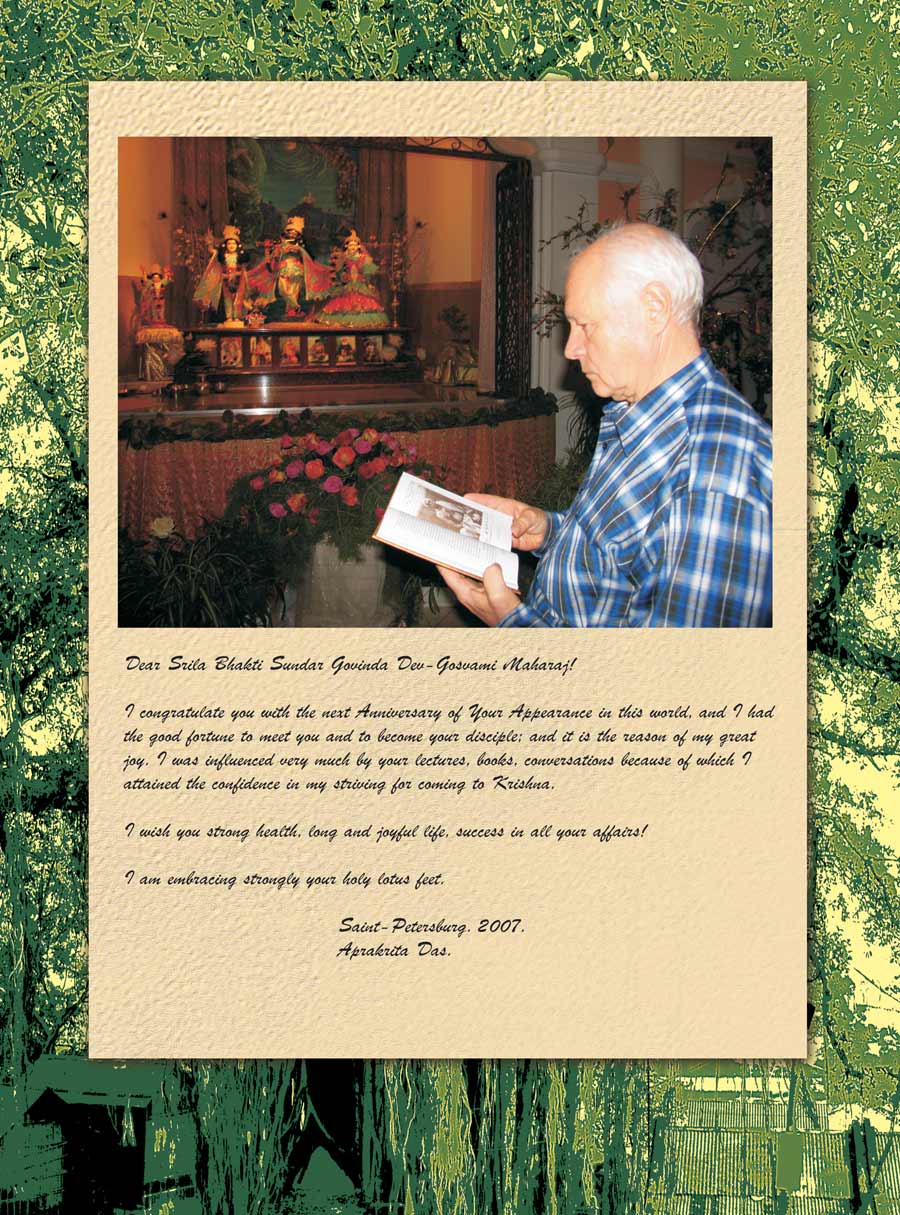 Dear Srila Bhakti Sundar Govinda Dev-Gosvami Maharaj!
I congratulate you with the next Anniversary of Your Appearance in this world, and I had
the good fortune to meet you and to become your disciple; and it is the reason of my great
joy. I was influenced very much by your lectures, books, conversations because of which I
attained the confidence in my striving for coming to Krishna.
I wish you strong health, long and joyful life, success in all your affairs!
I am embracing strongly your holy lotus feet.
Saint-Petersburg. 2007.
Aprakrita Das.